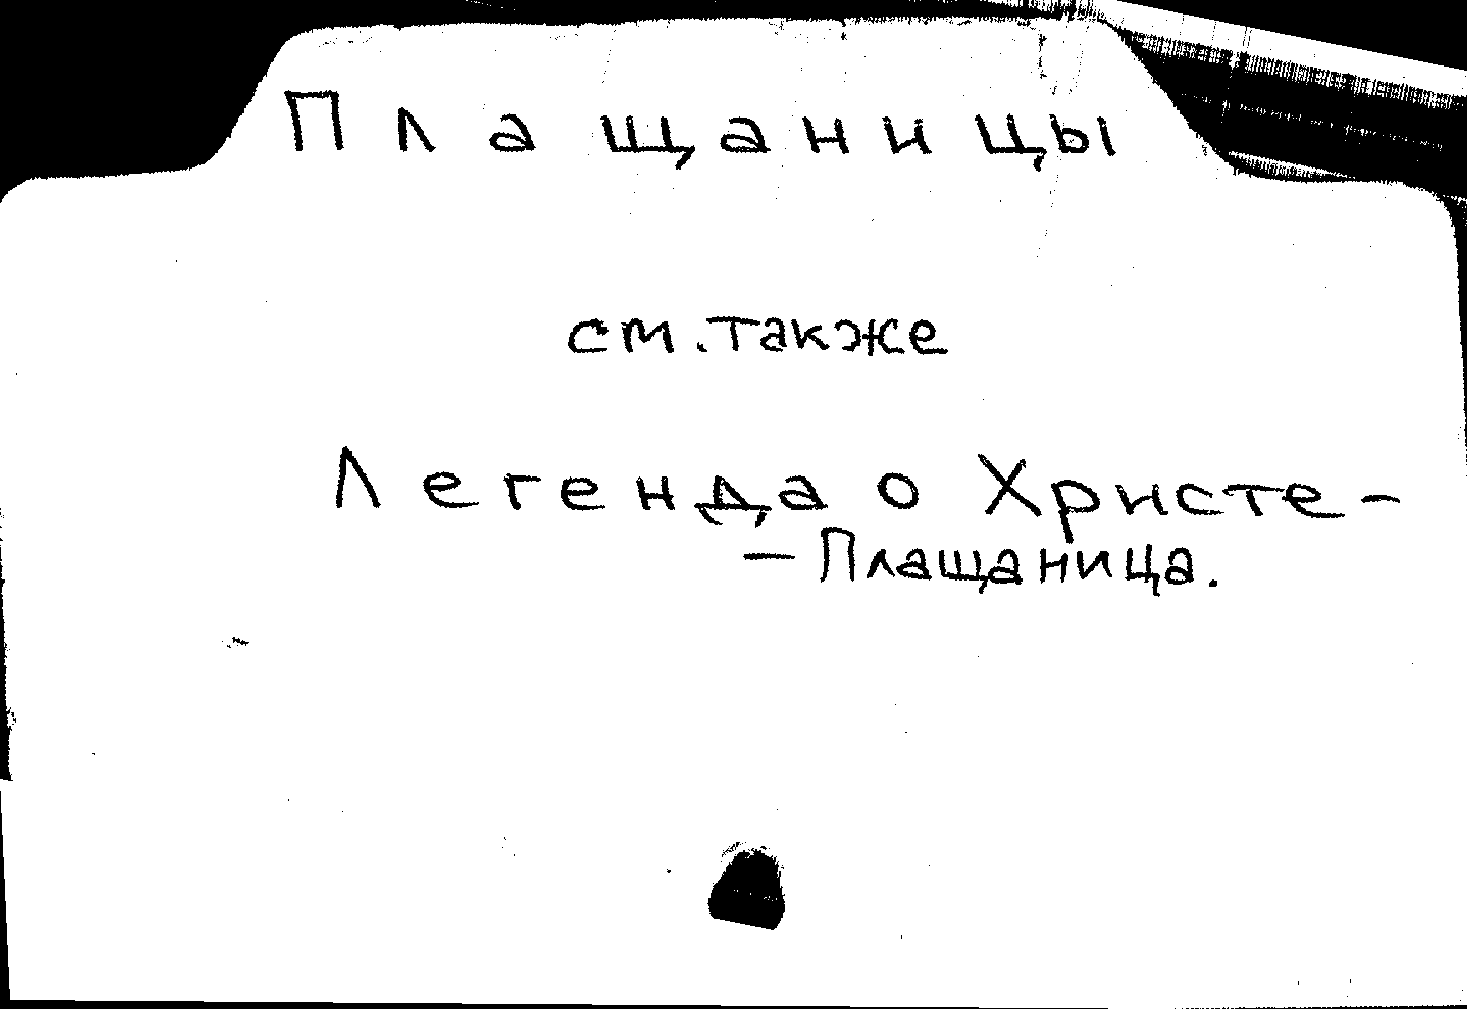 Плащаницы
см. также
Легенда о Христе -
- Плащаница.